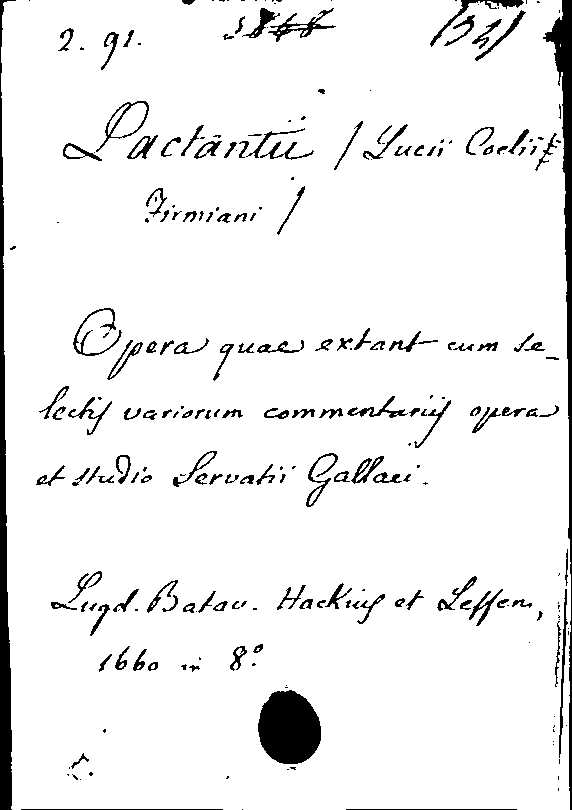 2. 91. 3848 (32)
Lactantii / Lucii Coelii
Firmiani /
Opera quae extant cum se_
lectis variorum commentariis opera
et studio Servatii Gallaei.
Lugd. Batav. Hackius et Leffen,
1660 in 8°.